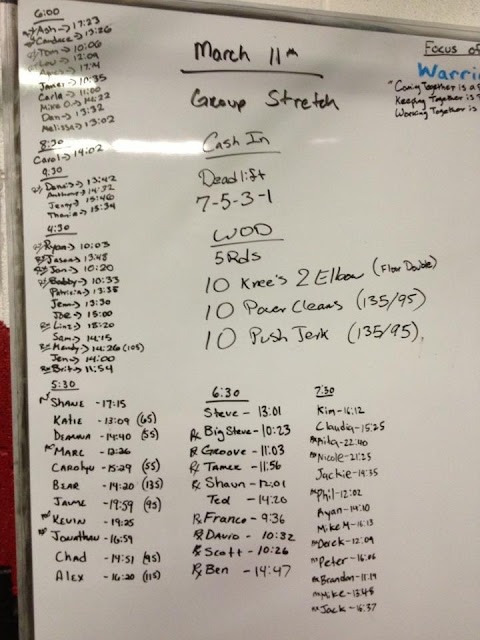 6:00
Ash → 17:23
Candace → 13:26
Tom → 10:06
Lou → 12:09
April → 17:14
James → 10:35
Carla → 11:00
Mike O. → 14:22
Dan → 13:32
Melissa → 13:02
8:30
Carol → 14:02
9:30
Rx Dennis → 13:42
Anthony → 14:32
Jenny → 15:46
Thania → 15:34
4:30
Rx Ryan → 10:03
Rx Jason → 13:48
Rx Jon → 10:20
Rx Bobby → 10:33
Patricia → 13:38
Jenn → 13:30
Joe → 15:00
Rx Linz → 18:20
Sam → 14:15
Rx Mandy → 14:26 (105)
Jen → 14:00
Rx Brit → 11:54
March 11th
Group Stretch
Cash In
Deadlift
7-5-3-1
WOD
5 Rds
10 Knee's 2 Elbow (Floor Double)
10 Power Cleans (135/95)
10 Push Jerk (135/95)
Focus of
Warri
"Coming Together is a
Keeping Together is
Working Together is
5:30
Rx Shane - 17:15
Katie - 13:09 (65)
Deanna - 14:40 (55)
Rx Marc - 12:26
Carolyn - 15:29 (55)
Bear - 14:20 (135)
Jayme - 19:59 (95)
Rx Kevin - 19:25
Rx Jonathan - 16:59
Chad - 14:51 (95)
Alex - 16:20 (115)
6:30
Steve - 13:01
Rx Big Steve - 10:23
Rx Groove - 11:03
Rx Tamer - 11:56
Rx Shaun - 12:01
Ted - 14:20
Rx Franco - 9:36
Rx David - 10:32
Rx Scott - 10:26
Rx Ben - 14:47
7:30
Kim - 16:12
Claudia - 15:25
Rx Rita - 22:40
Rx Nicole - 21:25
Jackie - 14:35
Rx Phil - 12:02
Ayan - 14:10
Mike M - 16:13
Rx Derek - 12:09
Rx Peter - 16:06
Rx Brandon - 11:19
Rx Mike - 13:48
Rx Jack - 15:37